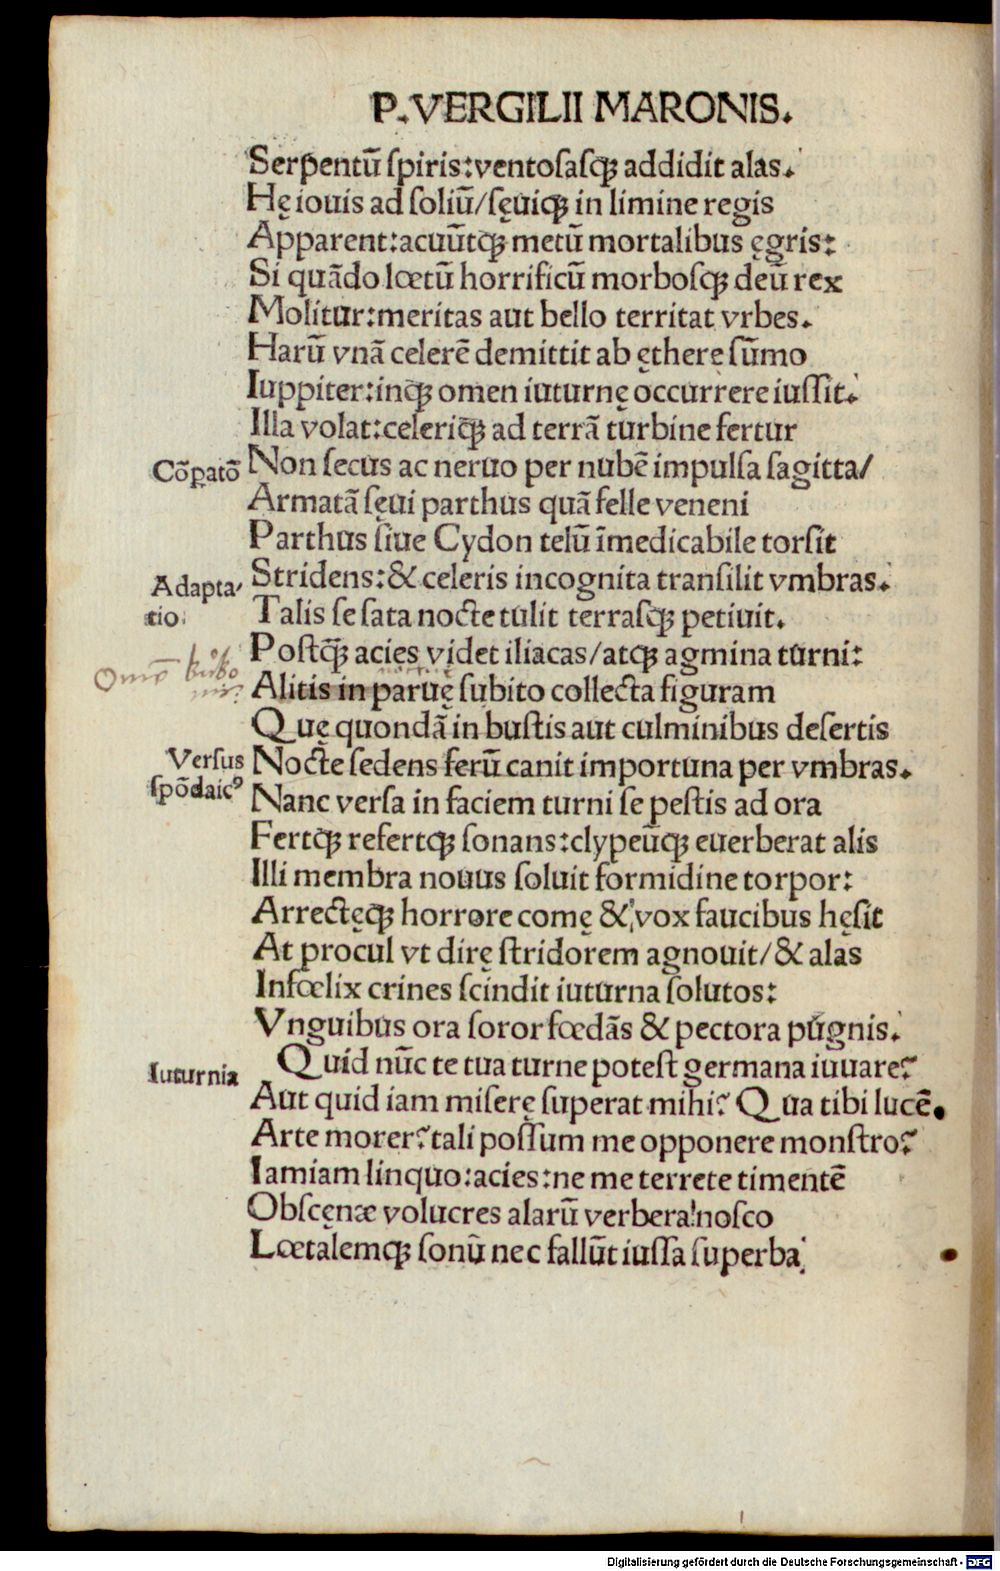 P. VERGILII MARONIS.
Serpentū ſpiris:ventoſaſqꝫ addidit alas.
Hę iouis ad ſoliū/ſęuiqꝫ in limine regis
Apparent:acuūtqꝫ metū mortalibus ęgris:
Si quādo lœtū horrificū morboſqꝫ deū rex
Molitur:meritas aut bello territat vrbes.
Harū vnā celerē demittit ab ęthere ſūmo
Iuppiter:inqꝫ omen iuturnę occurrere iuſſit.
Illa volat:celeriqꝫ ad terrā turbine fertur
Cōꝑatō Non ſecus ac neruo per nubē impulſa ſagitta/
Armatā ſęui parthus quā felle veneni
Parthus ſiue Cydon telū īmedicabile torſit
Adapta- Stridens:& celeris incognita tranſilit vmbras.
tio. Talis ſe ſata nocte tulit terraſqꝫ petiuit.
Poſtqꝫ̄ acies videt iliacas/atqꝫ agmina turni:
Omē bubo
Alitis in paruę ſubito collecta figuram
Quę quondā in buſtis aut culminibus deſertis
Versus Nocte ſedens ferū canit importuna per vmbras.
ſpōdaicꝰ Nanc verſa in faciem turni ſe peſtis ad ora
Fertqꝫ refertqꝫ ſonans:clypeūqꝫ euerberat alis
Illi membra nouus ſoluit formidine torpor:
Arrectęqꝫ horrore comę & vox faucibus hęſit
At procul vt dirę ſtridorem agnouit/& alas
Infœlix crines ſcindit iuturna ſolutos:
Vnguibus ora ſoror fœdās & pectora pūgnis.
Iuturnia Quid nūc te tua turne poteſt germana iuuare?
Aut quid iam miſerę ſuperat mihi? Qua tibi lucē.
Arte morer? tali poſſum me opponere monſtro?
Iamiam linquo:acies:ne me terrete timentē
Obſcęnæ volucres alarū verbera:noſco
Lœtalemqꝫ ſonū nec fallūt iuſſa ſuperba
Digitalisierung gefördert durch die Deutsche Forschungsgemeinschaft - DFG